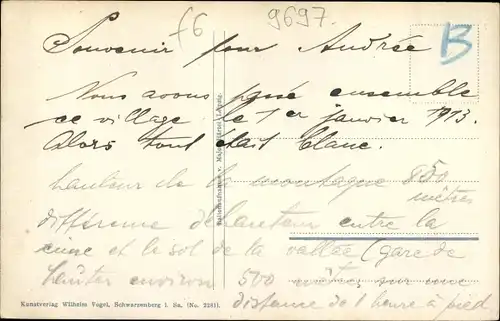 f6
9697.
B
Souvenir pour Andrée
Nous avons passé ensemble
ce village le 1er janvier 1913.
Alors tout était blanc.
hauteur de la montagne 850
mètres
différence de hauteur entre la
cime et le sol de la vallée (gare de
environ 500 mètres sur une
distance de 1 heure à pied
Kunstverlag Wilhelm Vogel, Schwarzenberg i. Sa. (No. 2281).